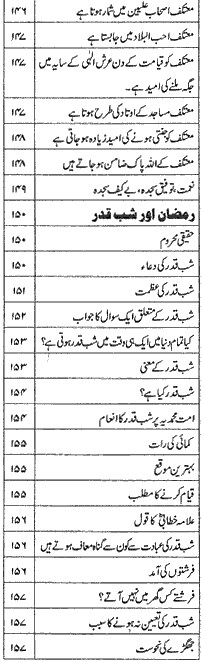 معتکف اصحاب علیین میں شمار ہوتا ہے ۱۴۶
معتکف احب البلاد میں جا بستا ہے ۱۴۷
معتکف کو قیامت کے دن عرش الٰہی کے سایہ میں جگہ ملنے کی امید ہے۔ ۱۴۷
معتکف مساجد کے اوتاد کی طرح ہوتا ہے ۱۴۷
معتکف کو جنتی ہونے کی امید زیادہ ہو جاتی ہے ۱۴۸
معتکف کے اللہ پاک ضامن ہو جاتے ہیں ۱۴۸
نعمت، توفیق سجدہ، بے کیف سجدہ ۱۴۹
رمضان اور شب قدر ۱۵۰
حقیقی محروم ۱۵۰
شب قدر کی دعاء ۱۵۰
شب قدر کی عظمت ۱۵۱
شب قدر کے متعلق ایک سوال کا جواب ۱۵۲
کیا تمام دنیا میں ایک ہی وقت میں شب قدر ہوتی ہے؟ ۱۵۳
شب قدر کے معنی ۱۵۳
شب قدر کیا ہے؟ ۱۵۴
امت محمدیہ پر شب قدر کا انعام ۱۵۴
کمائی کی رات ۱۵۵
بہترین موقع ۱۵۵
قیام کرنے کا مطلب ۱۵۵
علامہ خطابیؒ کا قول ۱۵۶
شب قدر کی عبادت سے کون سے گناہ معاف ہوتے ہیں ۱۵۶
فرشتوں کی آمد ۱۵۶
فرشتے کس گھر میں نہیں آتے؟ ۱۵۷
شب قدر کی تعیین نہ ہونے کا سبب ۱۵۷
جھگڑے کی نحوست ۱۵۷